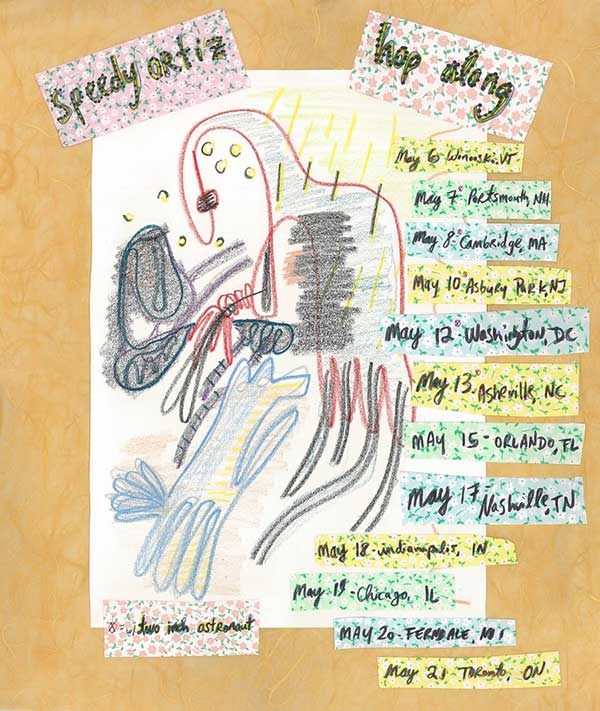 speedy ortiz
hop along
May 6 - Winooski, VT
May 7* - Portsmouth, NH
May 8* - Cambridge, MA
May 10* - Asbury Park NJ
May 12* - Washington, DC
May 13* - Asheville, NC
MAY 15 - ORLANDO, FL
May 17 - Nashville, TN
May 18 - indianapolis, IN
May 19 - Chicago, IL
MAY 20 - FERNDALE, MI
May 21 - Toronto, ON
* = w/ two inch astronaut